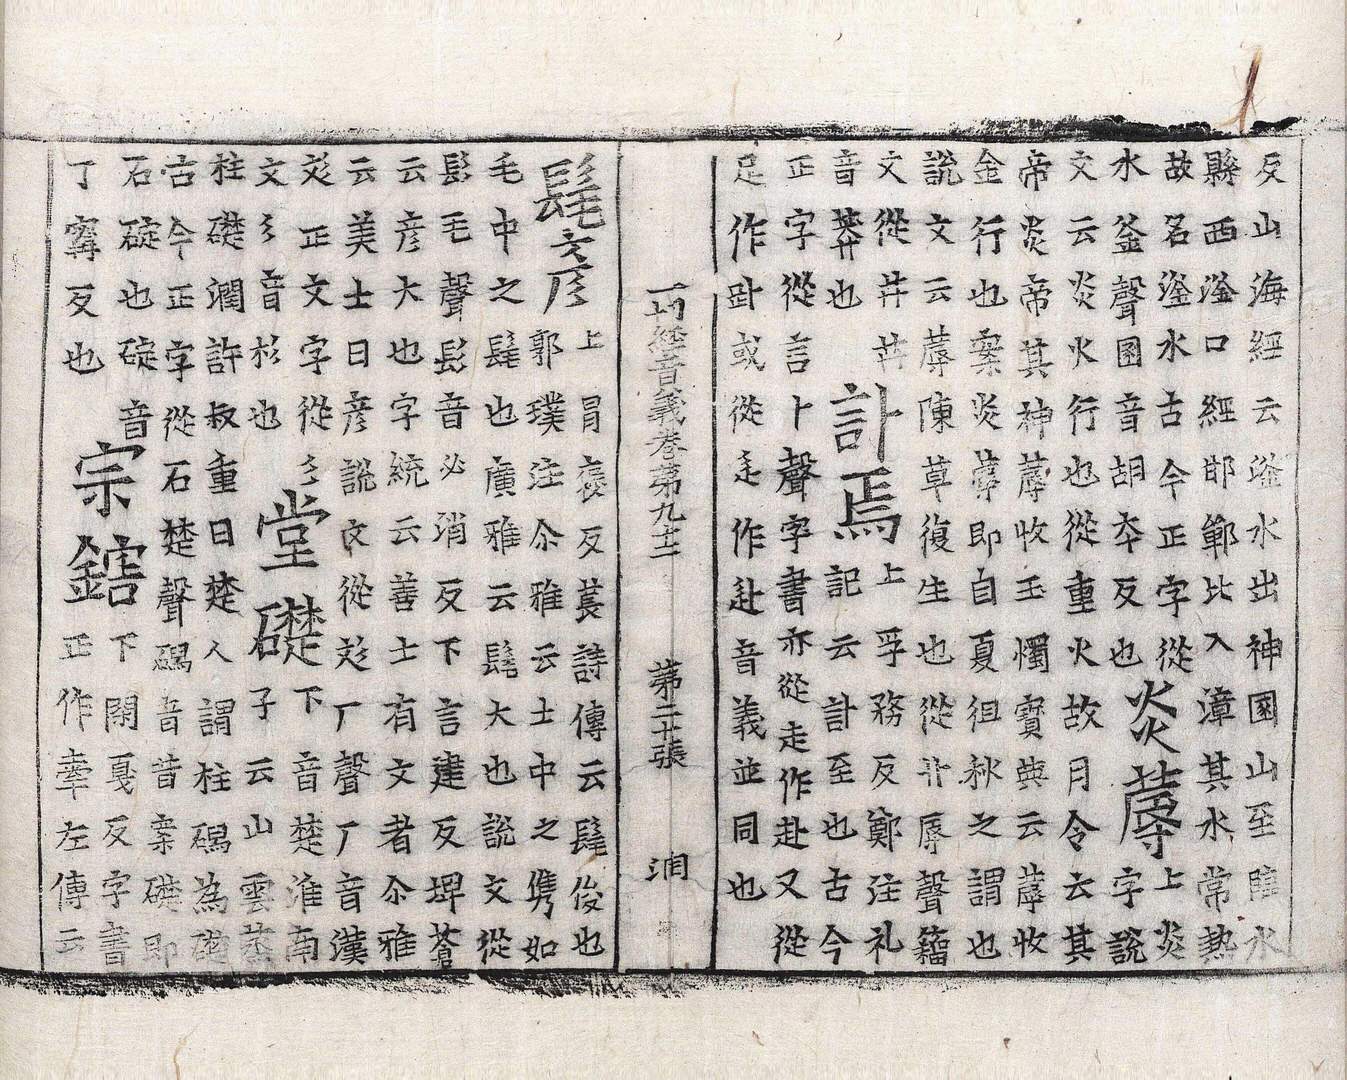 反山海經云滏水出神囷山至臨水
縣西滏口經邯鄲比入漳其水常熱
故名滏水古今正字從
水釜聲囷音胡夲反也
炎蓐
上炎字說
文云炎火行也從重火故月令云其
帝炎帝其神蓐收玉燭寶典云蓐收
金行也案炎蓐即自夏徂秋之謂也
說文云蓐陳草復生也從艸辱聲籀
文從茻茻
音莽也
訃焉
上孚務反鄭注礼
記云訃至也古今
正字從言卜聲字書亦從走作赴又從
足作䟔或從辵作赴音義並同也
一切經音義卷第九十二 第二十張 洞
髦彥
上冒襃反萇詩傳云髦俊也
郭璞注尒雅云士中之雋如
毛中之髦也廣雅云髦大也說文從
髟毛聲髟音必消反下言建反埤蒼
云彥大也字統云善士有文者尒雅
云美士曰彥說文從彣厂聲厂音漢
彣正文字從彡
文彡音杉也
堂礎
下音楚淮南
子云山雲蒸
柱礎潤許叔重曰楚人謂柱碣為礎
古今正字從石楚聲碣音昔案礎即
石碇也碇音
丁甯反也
宗鎋
下閑戛反字書
正作舝左傳云